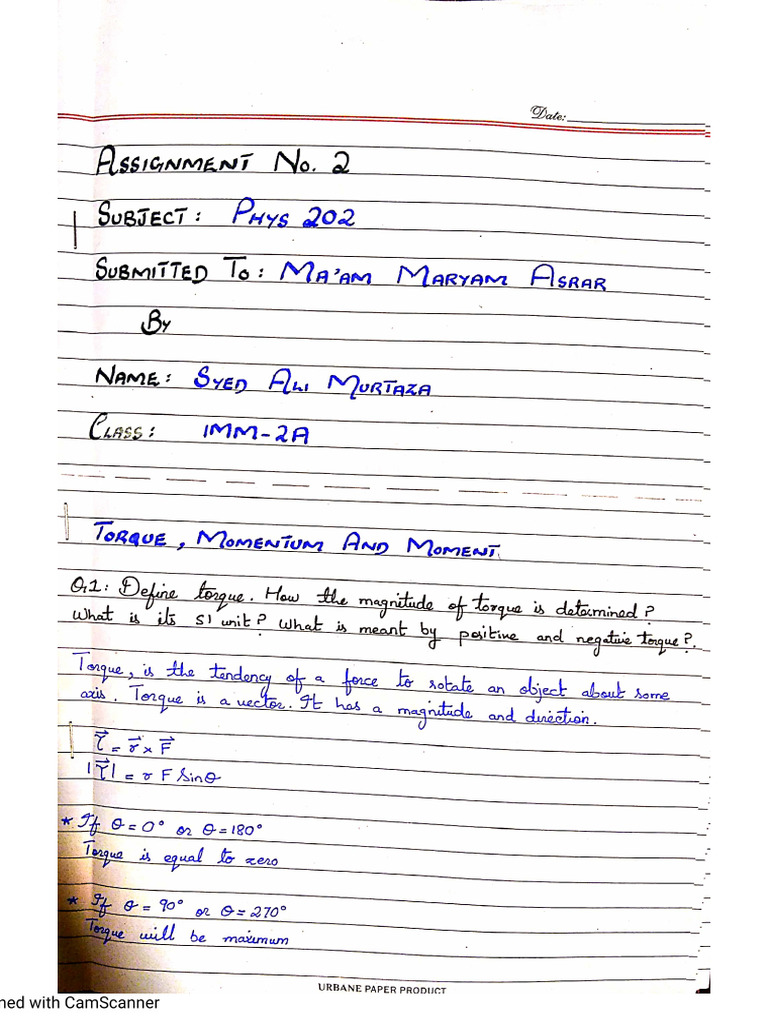 Date:
ASSIGNMENT NO. 2
SUBJECT: PHYS 202
SUBMITTED TO: MA'AM MARYAM ASRAR
BY
NAME: SYED ALI MURTAZA
CLASS: IMM-2A
TORQUE, MOMENTUM AND MOMENT.
Q.1: Define torque. How the magnitude of torque is determined?
What is its SI unit? What is meant by positive and negative torque?.
Torque, is the tendency of a force to rotate an object about some
axis. Torque is a vector. It has a magnitude and direction.
τ⃗ = r⃗ × F⃗
|τ⃗| = r F Sinθ
* If θ = 0° or θ = 180°
Torque is equal to zero
* If θ = 90° or θ = 270°
Torque will be maximum
URBANE PAPER PRODUCT
ned with CamScanner